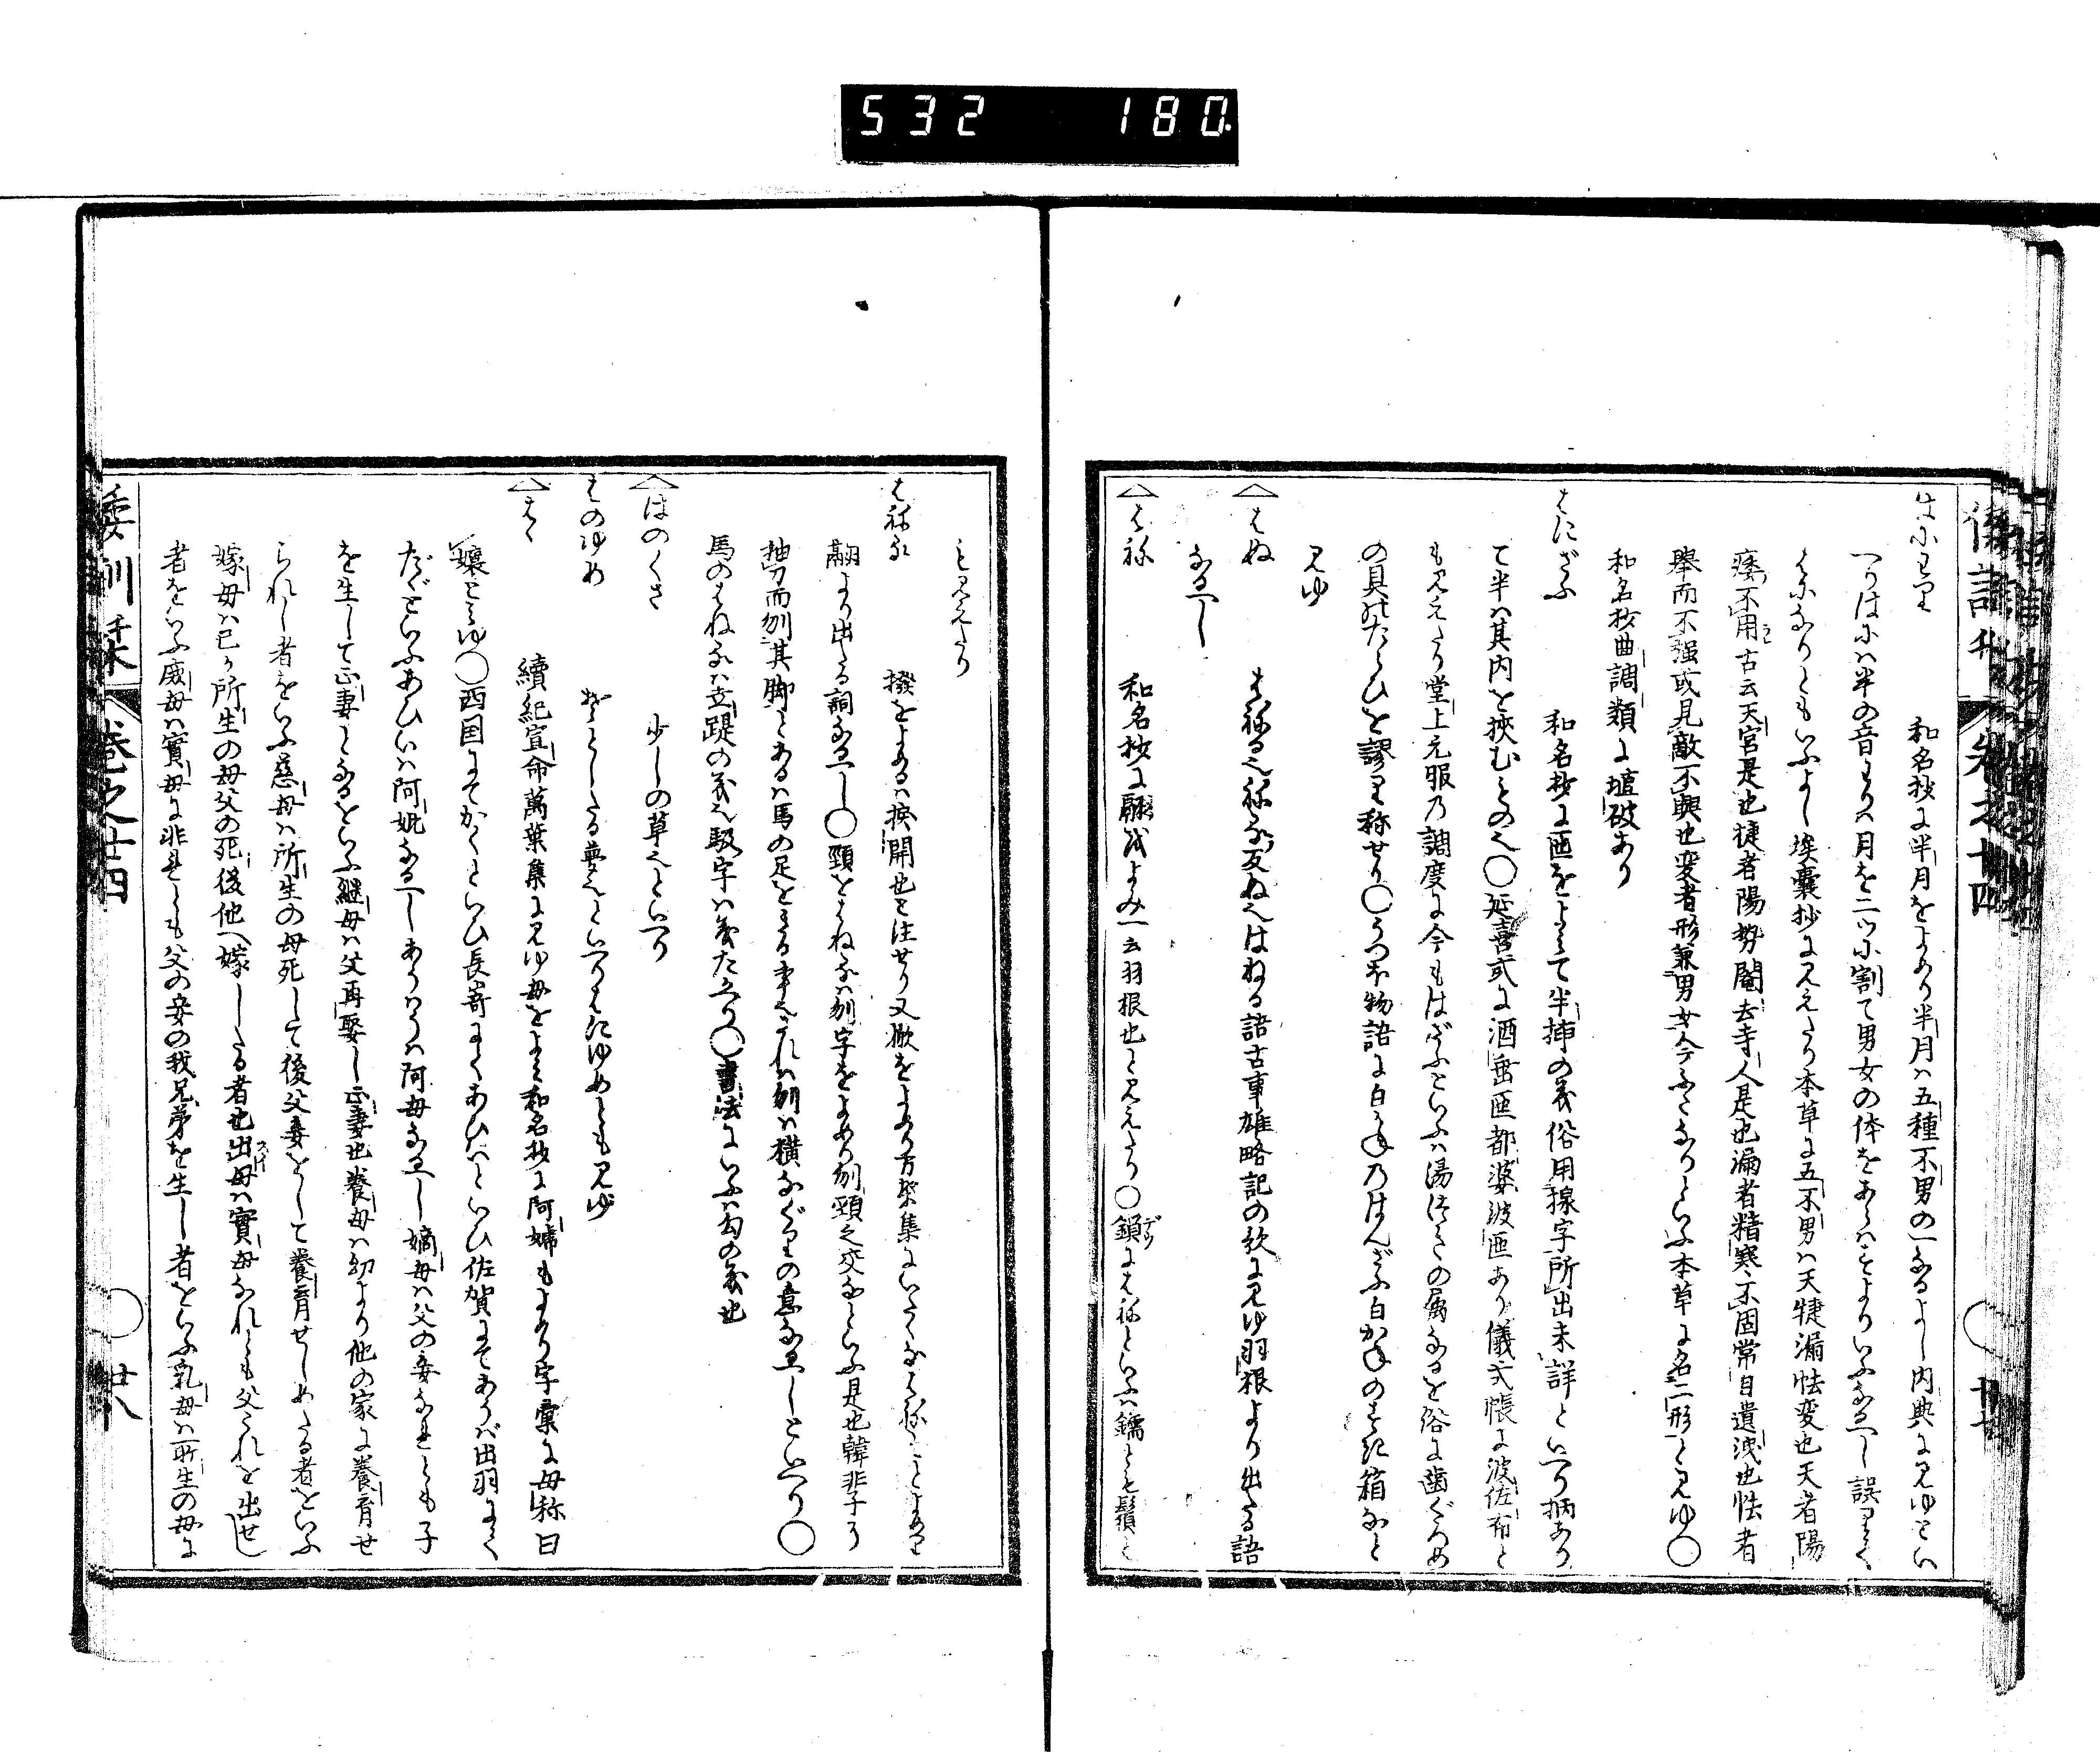 532 180
はにわり 和名抄に半月をよめり半月ハ五種不男の一なるよし内典に見ゆといへり
はにハ半の音もて月を二ツに割て男女の体をあらハせよりいふなるへし誤りて
はになりともいふよし埃嚢抄に見えたり本草に五不男ハ天犍漏怯変也天者陽
痿不用古云天宦是也犍者陽勢閹去寺人是也漏者精寒不固常自遺洩也怯者
挙而不强或見敵不興也変者形兼男女今ふたなりといふ本草に名二形と見ゆ〇
和名抄曲調類に壹破あり
はにざふ 和名抄に匜をよみて半挿の義俗用楾字所出未詳といへり柄あり
て半ハ其内を挾むもの也〇延喜式に酒垂匜都婆波匜あり儀式帳に波佐布と
も見えたり堂上元服乃調度に今もはざふといふハ湯つきの属なるを俗に歯ぐろめ
の具のたらひを謬り称せり〇うつぼ物語に白かね乃はんざふ白かねのすき箱なと
見ゆ
△はぬ はねる也ねる反ぬ也はねる語古事雄略記の歌に見ゆ羽根より出たる語
なるへし
△はね 和名抄に翮をよみ一云羽根也と見えたり〇鎖にはねといふハ鐍とも鬚と
も見えたり
はねる 撥をよめるハ挨開也と注せり又撤をよめり万葉集にいたくなはねそとよめり
翮より出たる詞なるへし〇頸をはねるハ刎字をよめり刎頸之交なといふ是也韓非子に
抽刀而刎其脚とあるハ馬の足をきる事也されハ刎ハ横なぐりの意なるへしといへり〇
馬のはねるハ立踶の義也馺字ハ義たかへり〇書法にいふハ勾の義也
△はのくさ 少しの草也といへり
はのゆめ おとしたる夢也といへりはたゆめとも見ゆ
△はゝ 續紀宣命萬葉集に見ゆ母をよみ和名抄に阿嬭もよめり字彙に母称曰
嬢と見ゆ〇西国にてかくといひ長嵜にてあひといひ佐賀にてあうば出羽にて
だぐといふあひハ阿妣なるへしあうハ阿母なるへし嫡母ハ父の妾なれとも子
を生して正妻となるをいふ継母ハ父再娶し正妻也養母ハ幼より他の家に養育せ
られし者をいふ慈母ハ所生の母死して後父妾をして養育せしめたる者をいふ
嫁母ハ已に所生の母父の死後他へ嫁したる者也出母ハ實母なれとも父これを出せし
者をいふ庶母ハ實母に非れとも父の妾の我兄弟を生し者をいふ乳母ハ所生の母に
倭訓栞 巻之廿四 廿八